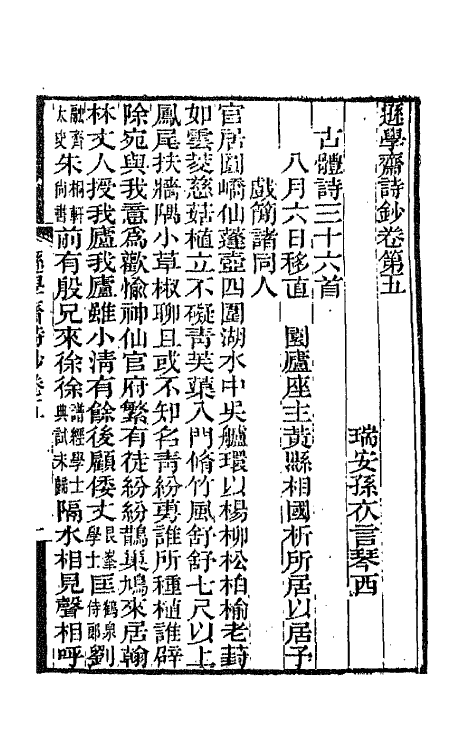 遜學齋詩鈔卷第五
瑞安孫衣言琴西
古體詩三十六首
八月六日移直 園廬座主黃縣相國析所居以居予
戲簡諸同人
官居圓嶠仙蓬壺四圍湖水中吳艫環以楊柳松柏榆老葑
如雲菱慈姑植立不礙靑芙蕖入門脩竹風舒舒七尺以上
鳳尾扶牆隅小草椒聊且或不知名靑紛旉誰所種植誰辟
除宛與我意爲歡愉神仙官府繁有徒紛紛鵲巢鳩來居翰
林丈人授我廬我廬雖小淸有餘後顧倭丈艮峯學士匡鶴泉侍郎劉
融齋太史朱桐軒尚書前有殷兄來徐徐譜經學士典試未歸隔水相見聲相呼
遜學齋詩鈔卷五
一